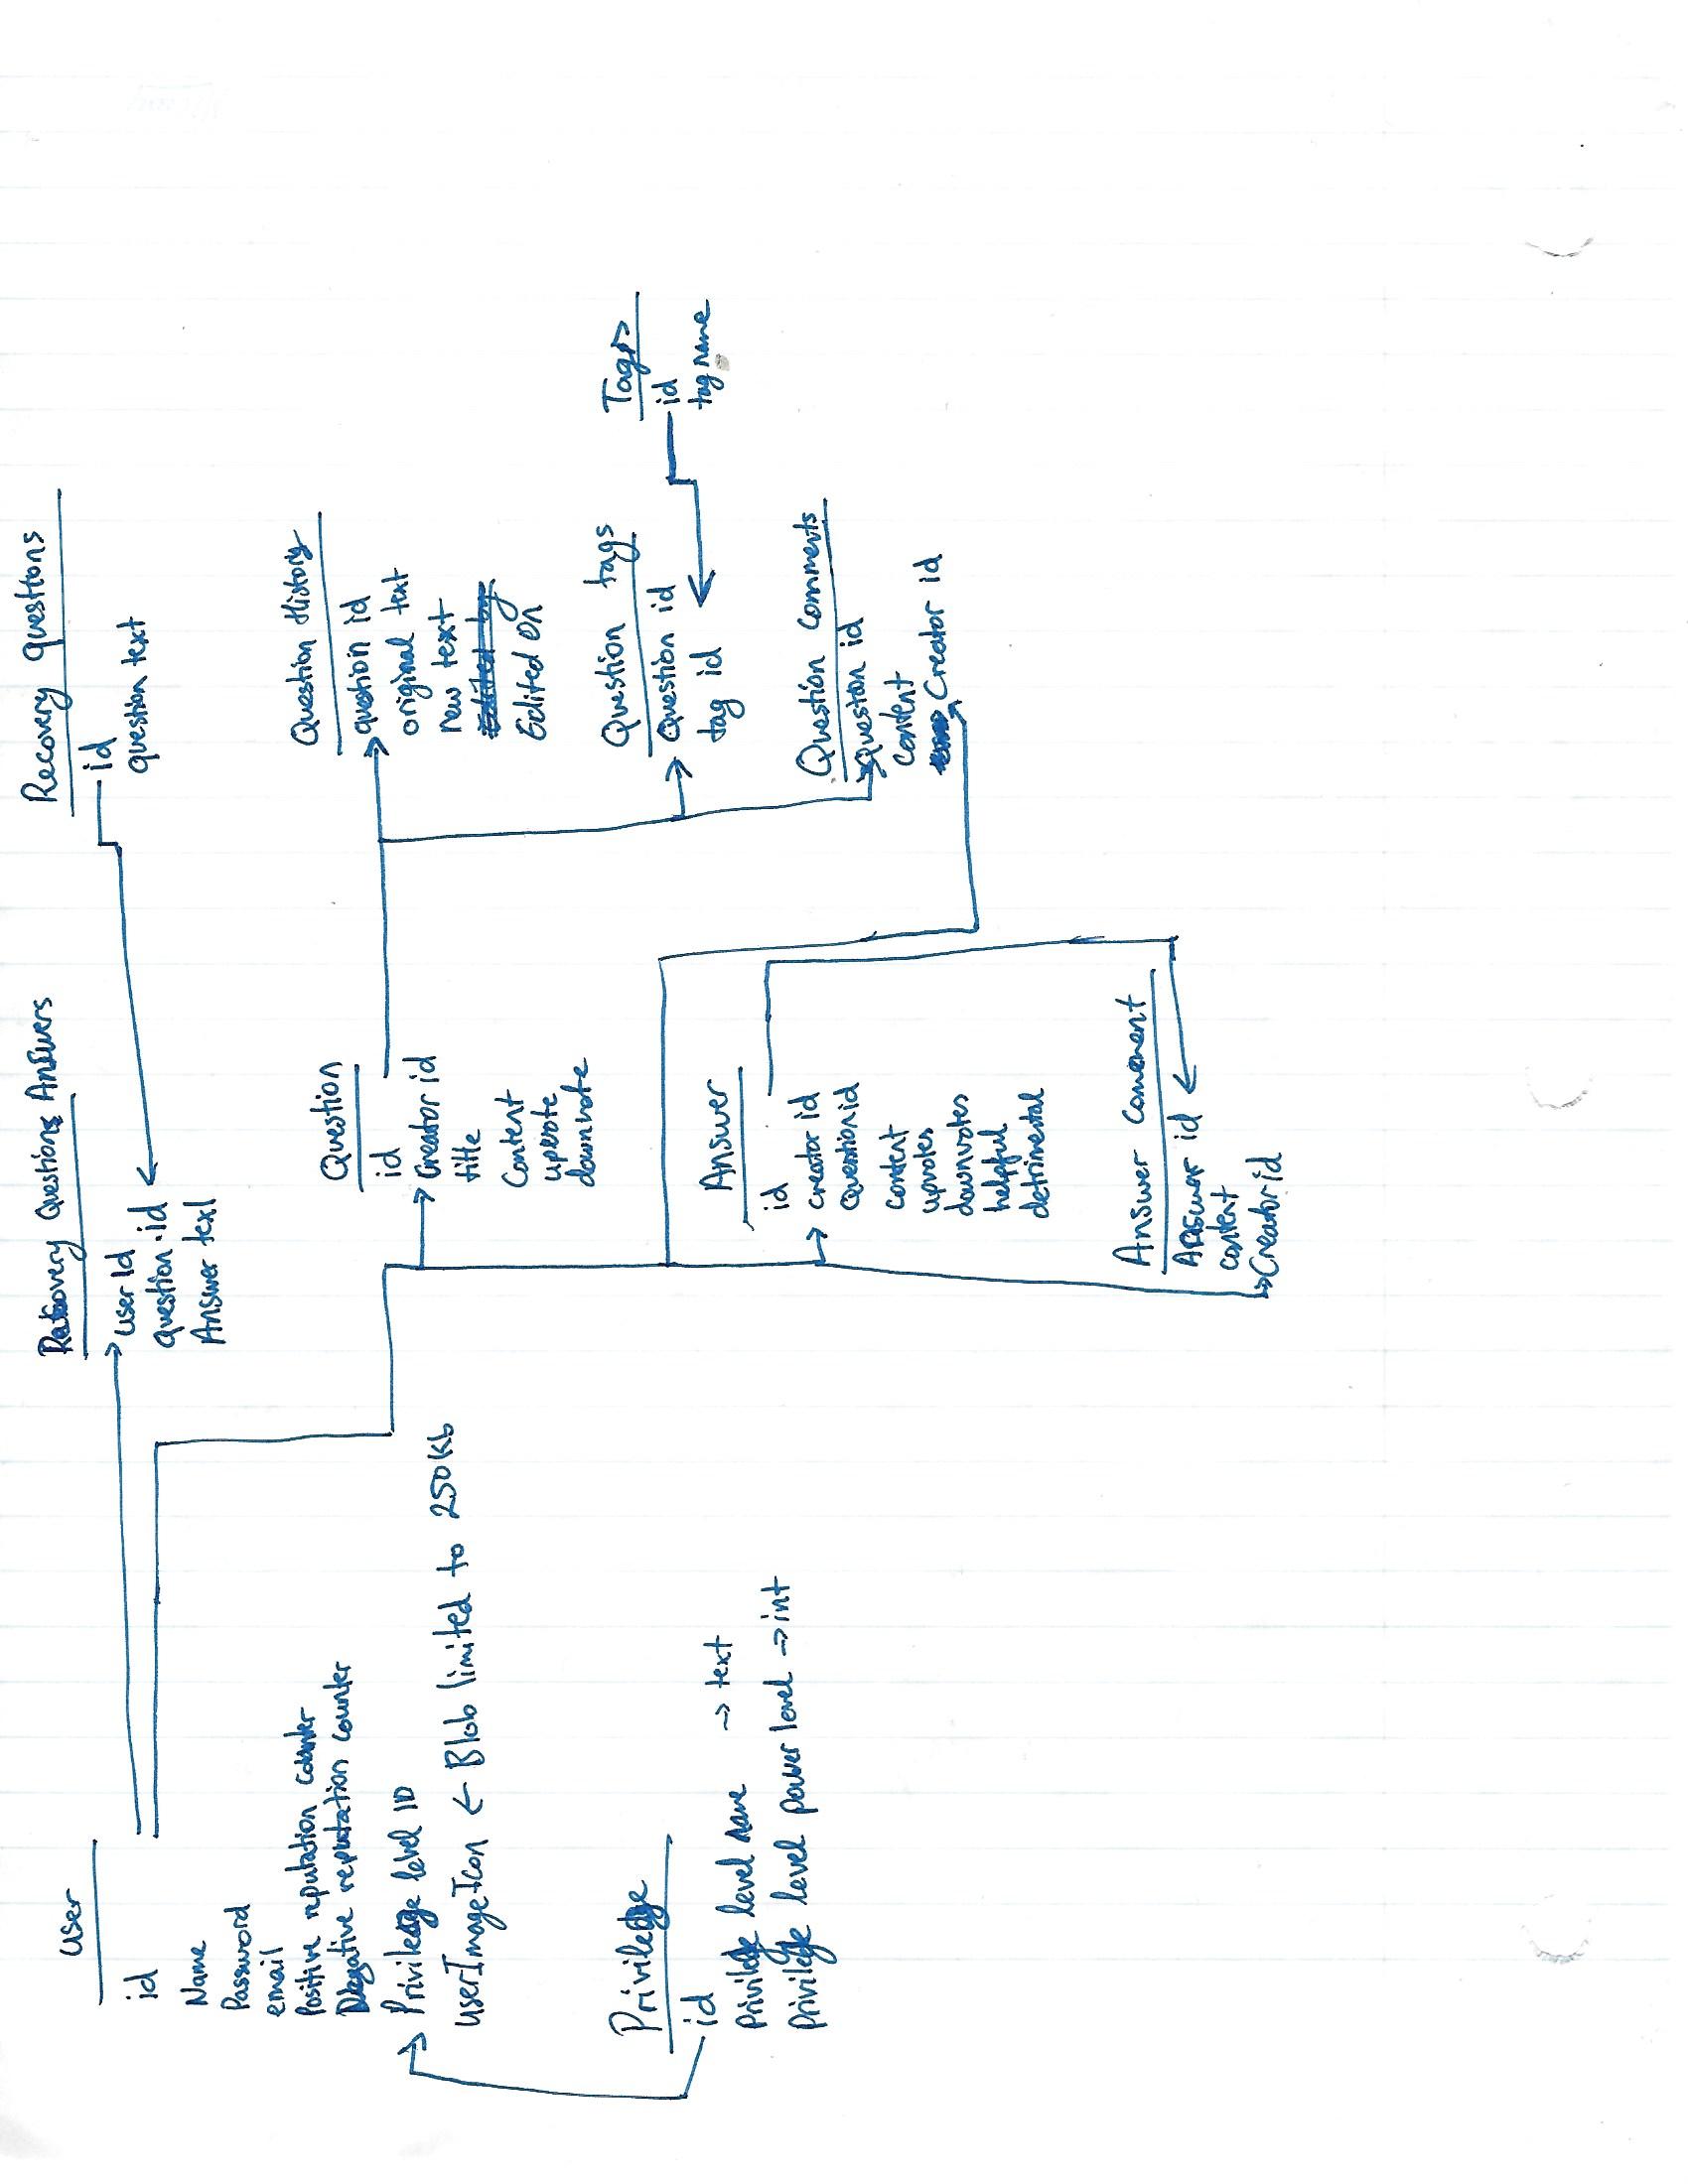 user
id
Name
Password
email
Positive reputation counter
Negative reputation counter
Privilege level ID
userImageIcon ← Blob limited to 250Kb
Privilege
id
Privilege level name → text
Privilege level power level → int
Recovery Questions Answers
user Id
question id
Answer text
Recovery questions
id
question text
Question
id
Creator id
title
Content
upvote
downvote
Question History
question id
original text
new text
Edited by
Edited On
Question tags
Question id
tag id
Tags
id
tag name
Answer
id
creator id
Question id
content
upvotes
downvotes
helpful
detrimental
Question comments
Question id
content
Creator id
Answer comment
Answer id
content
Creator id